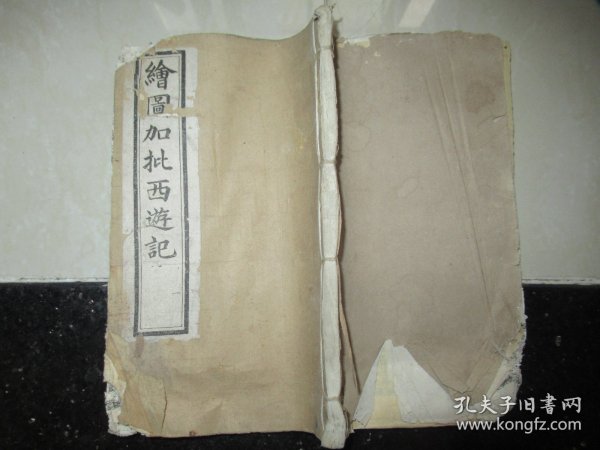 繪圖加批西遊記
孔夫子旧書网
www.kongfz.com